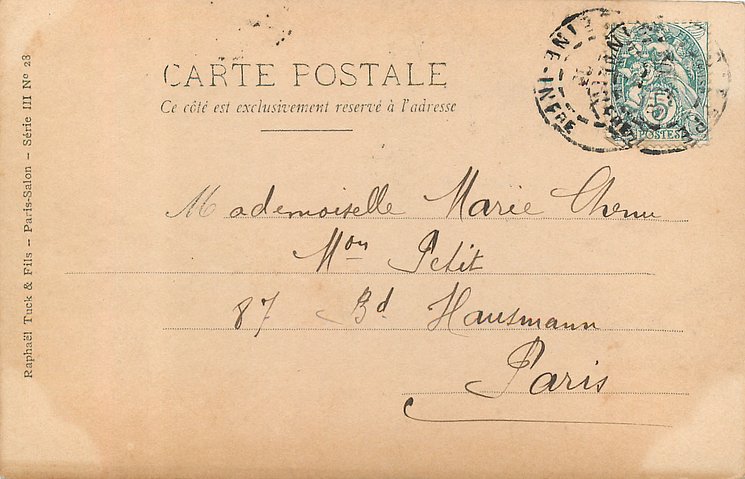 CARTE POSTALE
Ce côté est exclusivement reservé à l'adresse
Mademoiselle Marie Chenu
Mon Petit
87 Bd Hausmann
Paris
Raphaël Tuck & Fils — Paris-Salon — Série III No 23
5
POSTES
INE-INFRE